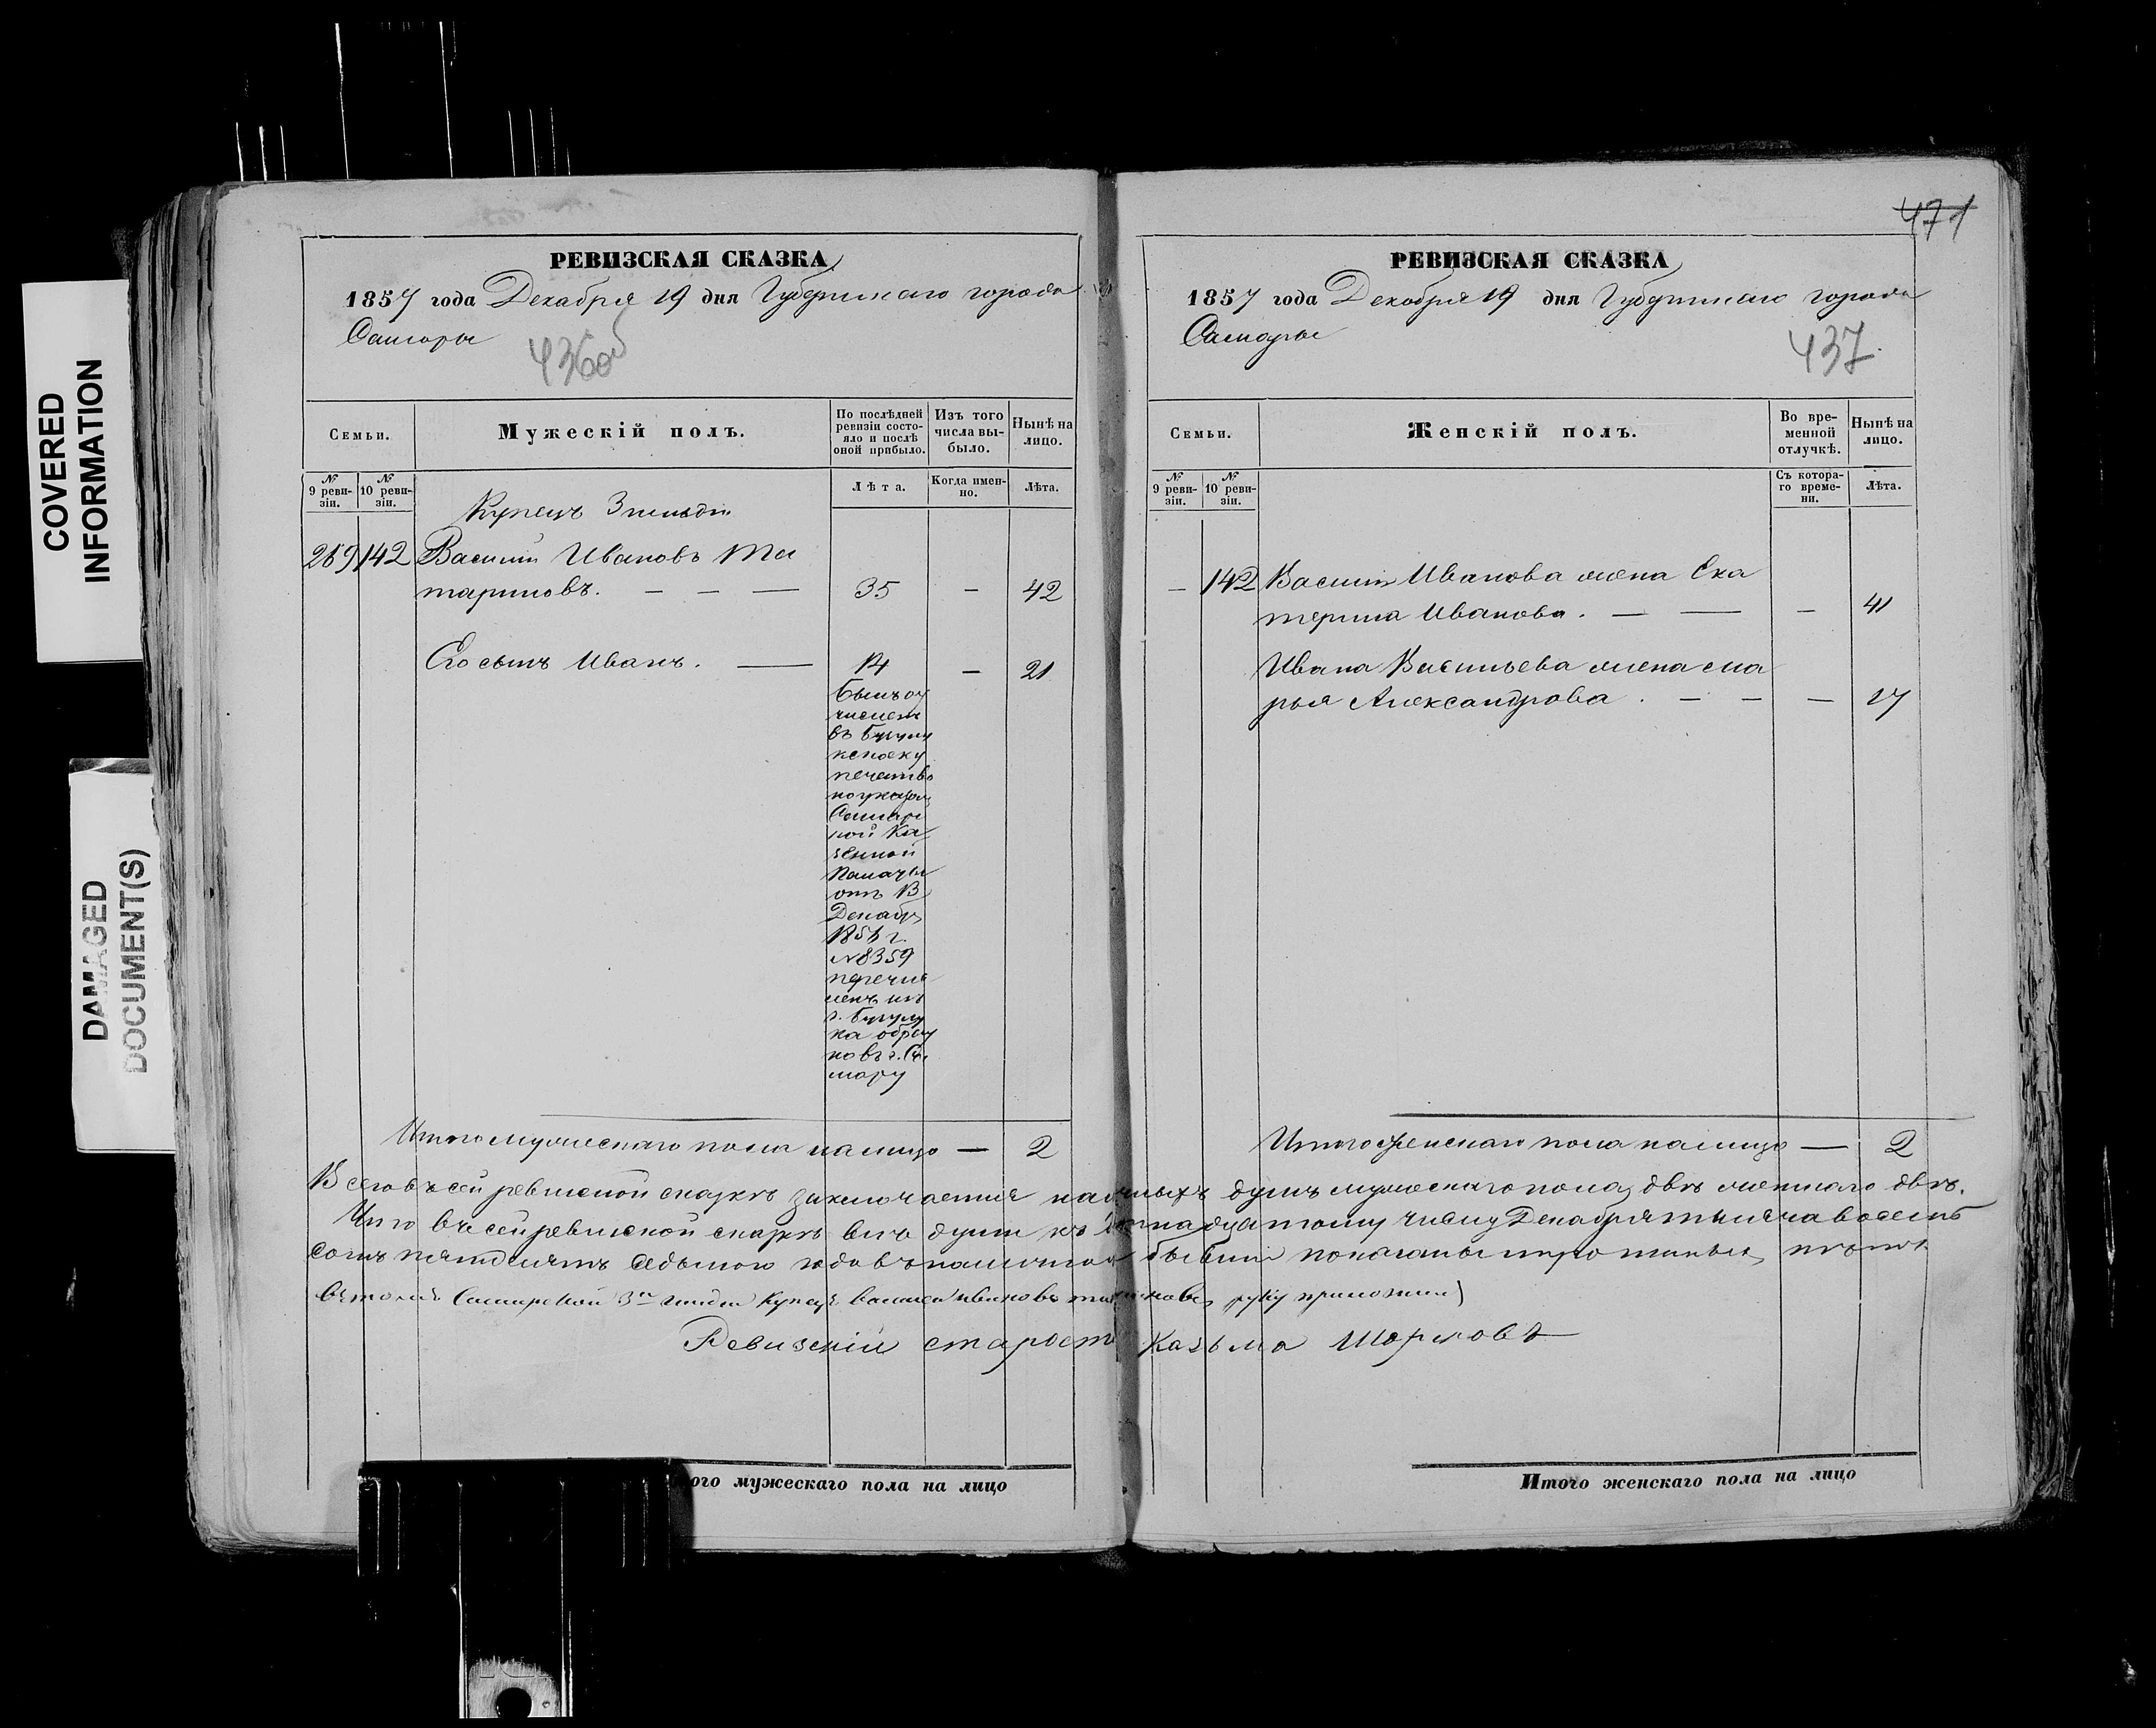 COVERED
INFORMATION
DAMAGED
DOCUMENT(S)
РЕВИЗСКАЯ СКАЗКА
1857 года Декабря 19 дня Губернскаго города
Самары
436об
Семьи.
Мужескій полъ.
По послѣдней
ревизіи состо-
яло и послѣ
оной прибыло.
Изъ того
числа вы-
было.
Нынѣ на
лицо.
№
9 реви-
зіи.
№
10 реви-
зіи.
Лѣта.
Когда имен-
но.
Лѣта.
Купецъ 3 гильдіи
269 142 Василій Ивановъ Та
тариновъ. — — — 35 — 42
Его сынъ Иванъ. — 14 — 21
Былъ от
числен
въ Бугуру
кечество
по указу
Самарс
кой Ка
зенной
Палаты
отъ
Декабр
185 г.
№8359
перечис
ленъ изъ
г. Бугуру
на обрат
но въ г. Са
мару
Итого мужескаго пола на лицо — 2
471
РЕВИЗСКАЯ СКАЗКА
1857 года Декабря 19 дня Губернскаго города
Самары
437.
Семьи.
Женскій полъ.
Во вре-
менной
отлучкѣ.
Нынѣ на
лицо.
№
9 реви-
зіи.
№
10 реви-
зіи.
Съ котора-
го време-
ни.
Лѣта.
— 142 Василія Иванова жена Ека
терина Иванова. — — — 41
Ивана Васильева жена Ма
рья Александрова. — — — 17
Итого женскаго пола на лицо — 2
Всего въ сей ревизской сказкѣ заключается наличныхъ душъ мужескаго пола двѣ женскаго двѣ.
Что въ сей ревизской сказкѣ всѣ души къ надцатому числу Декабря тысяча восемь
сотъ пятдесятъ седьмого года въ наличности бывшіе показаны и прописныхъ нѣтъ
въ томъ Самарской 3й гильдіи Купецъ Василей Ивановъ Татариновъ руку приложилъ
Ревизскій староста Казьма Шарловъ
ого мужескаго пола на лицо
Итого женскаго пола на лицо